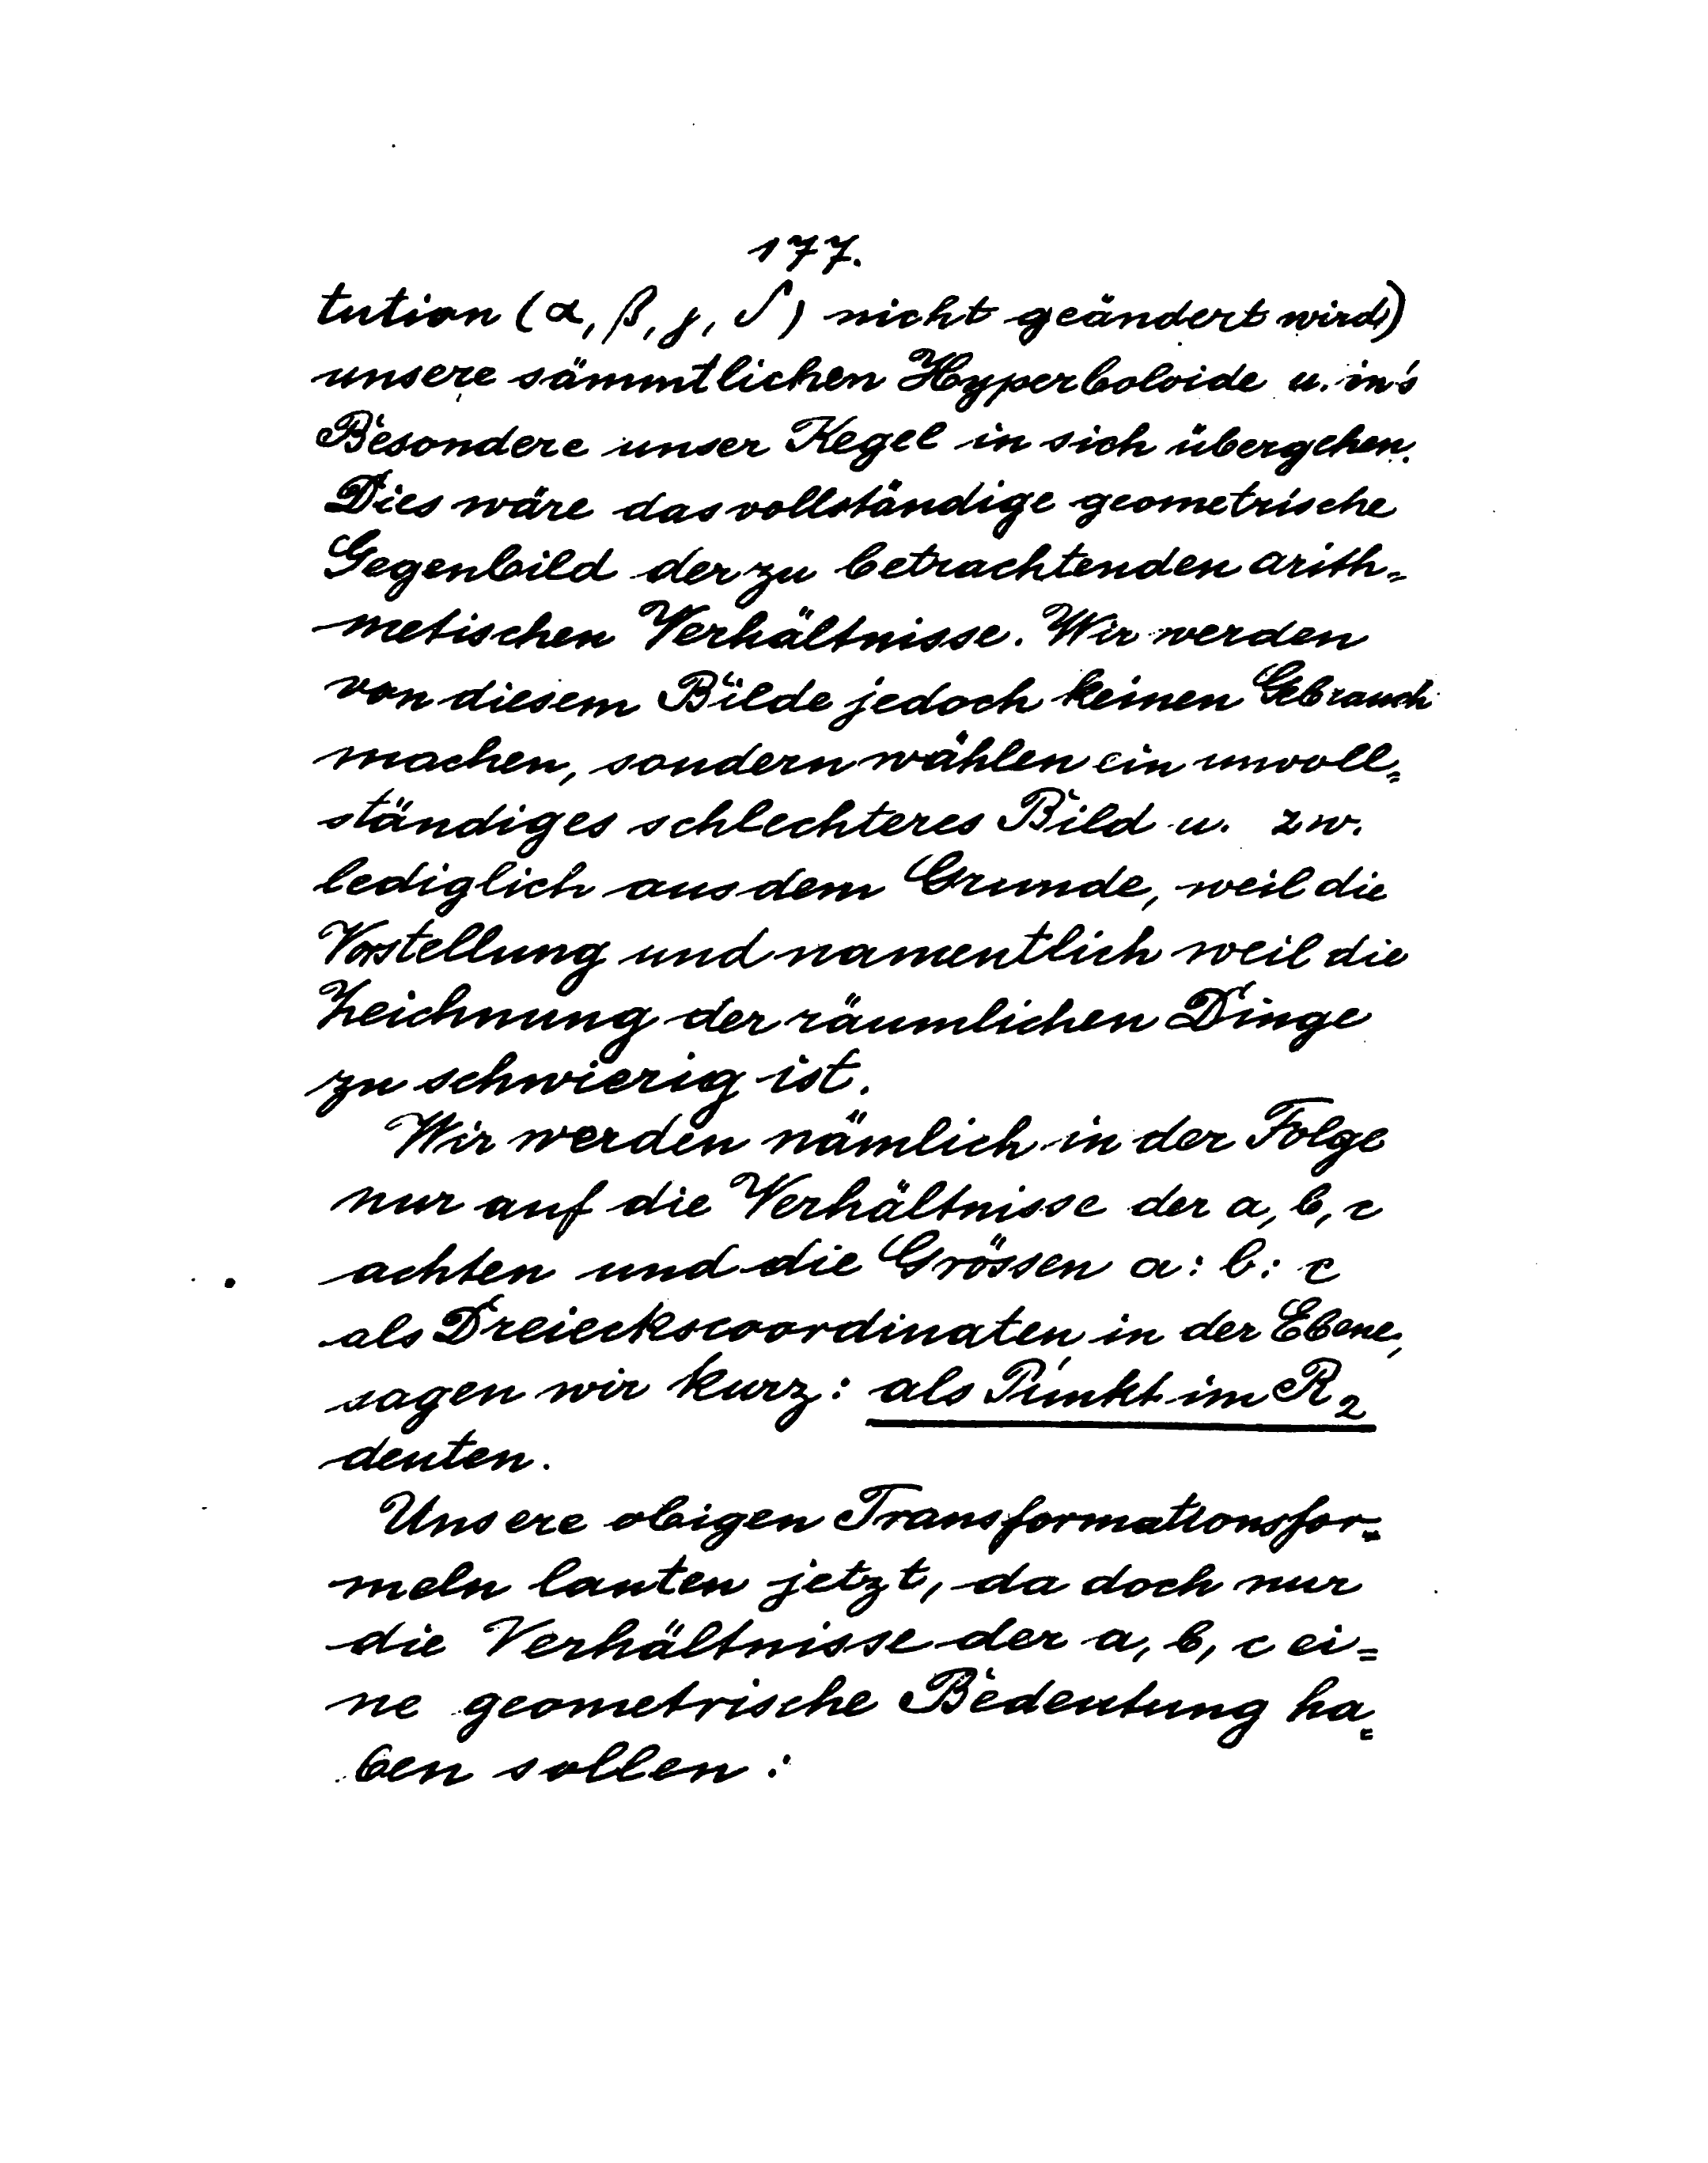 177.
tution (α, β, γ, δ) nicht geändert wird)
unsere sämmtlichen Hyperboloide u. in's
Besondere unser Kegel in sich übergehen.
Dies wäre das vollständige geometrische
Gegenbild der zu betrachtenden arith=
metischen Verhältnisse. Wir werden
von diesem Bilde jedoch keinen Gebrauch
machen, sondern wählen ein unvoll=
ständiges schlechteres Bild u. zw.
lediglich aus dem Grunde, weil die
Vorstellung und namentlich weil die
Zeichnung der räumlichen Dinge
zu schwierig ist.
Wir werden nämlich in der Folge
nur auf die Verhältnisse der a, b, c
achten und die Grössen a : b : c
als Dreieckscoordinaten in der Ebene,
sagen wir kurz: als Punkt im R₂
deuten.
Unsere obigen Transformationsfor=
meln lauten jetzt, da doch nur
die Verhältnisse der a, b, c ei=
ne geometrische Bedeutung ha=
ben sollen: